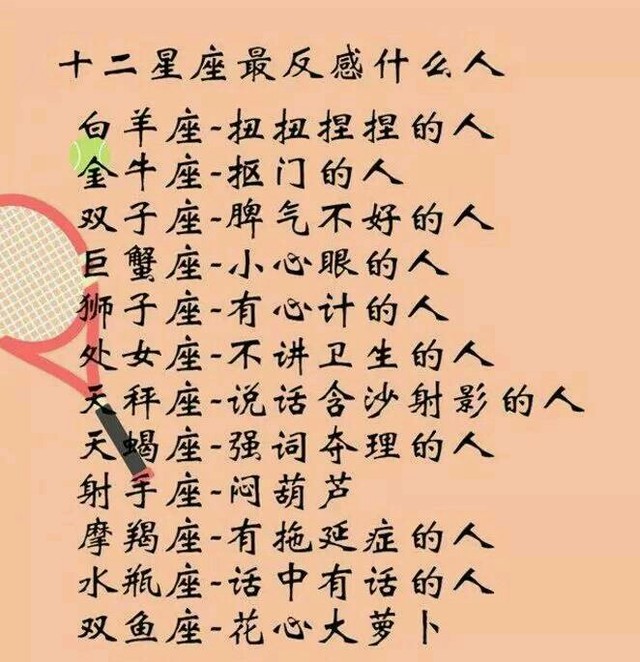 十二星座最反感什么人
白羊座-扭扭捏捏的人
金牛座-抠门的人
双子座-脾气不好的人
巨蟹座-小心眼的人
狮子座-有心计的人
处女座-不讲卫生的人
天秤座-说话含沙射影的人
天蝎座-强词夺理的人
射手座-闷葫芦
摩羯座-有拖延症的人
水瓶座-话中有话的人
双鱼座-花心大萝卜